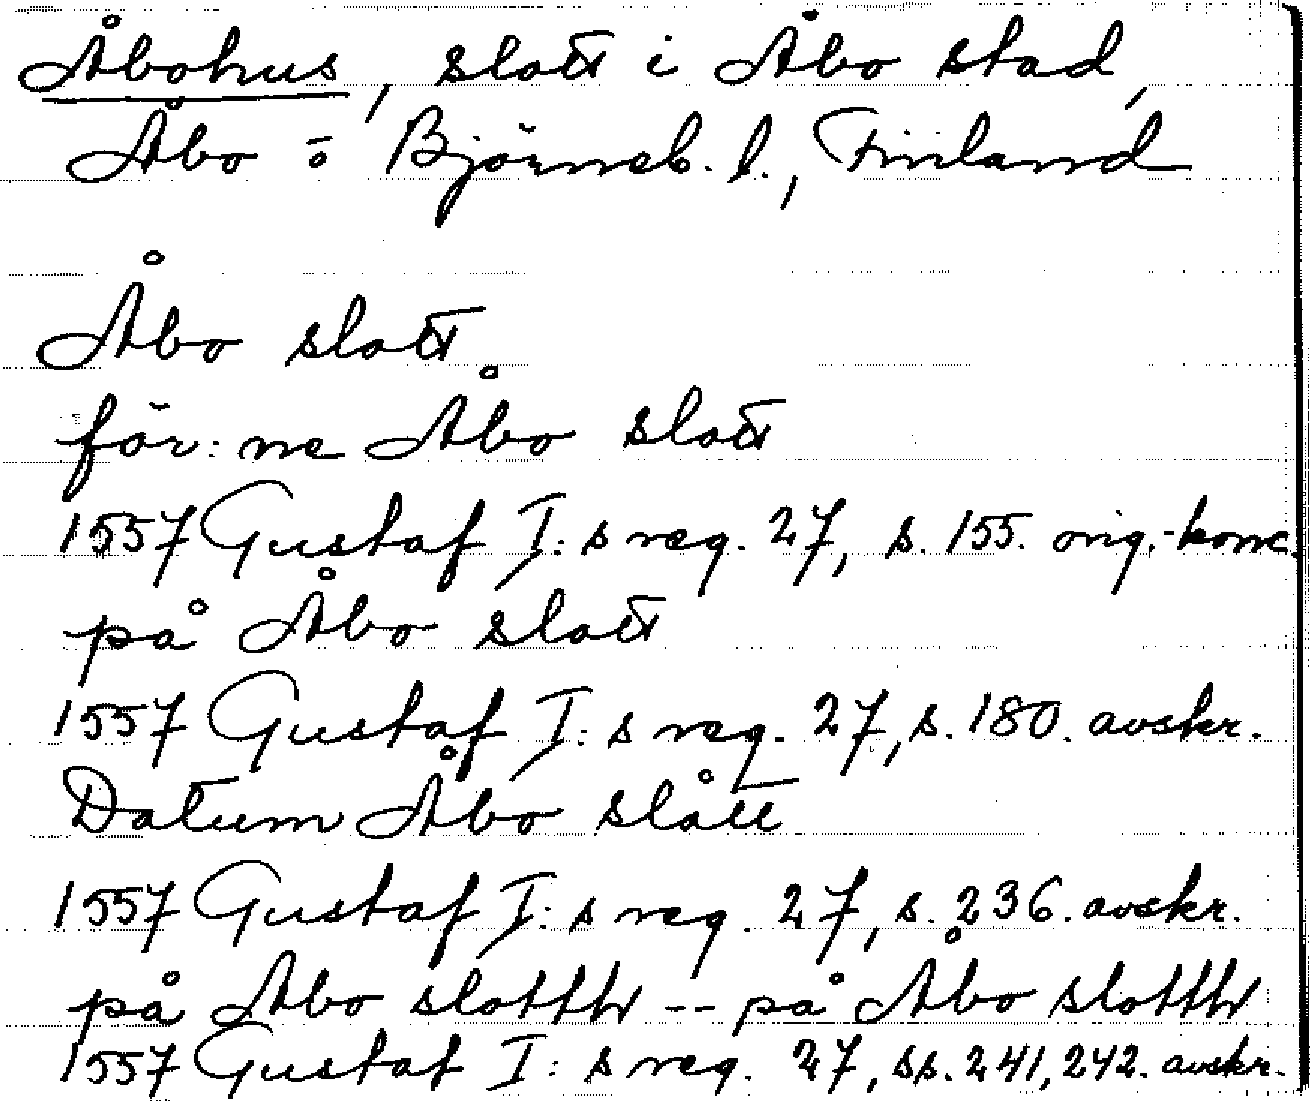 Åbohus, slott i Åbo stad,
Åbo o. Björneb. l., Finland
Åbo slott
för:ne Åbo slott
1557 Gustaf I:s reg. 27, s. 155. orig.-konc.
på Åbo slott
1557 Gustaf I:s reg. 27, s. 180. avskr.
Datum Åbo slått
1557 Gustaf I:s reg. 27, s. 236. avskr.
på Åbo slotth -- på Åbo slotth
1557 Gustaf I:s reg. 27, ss. 241, 242. avskr.